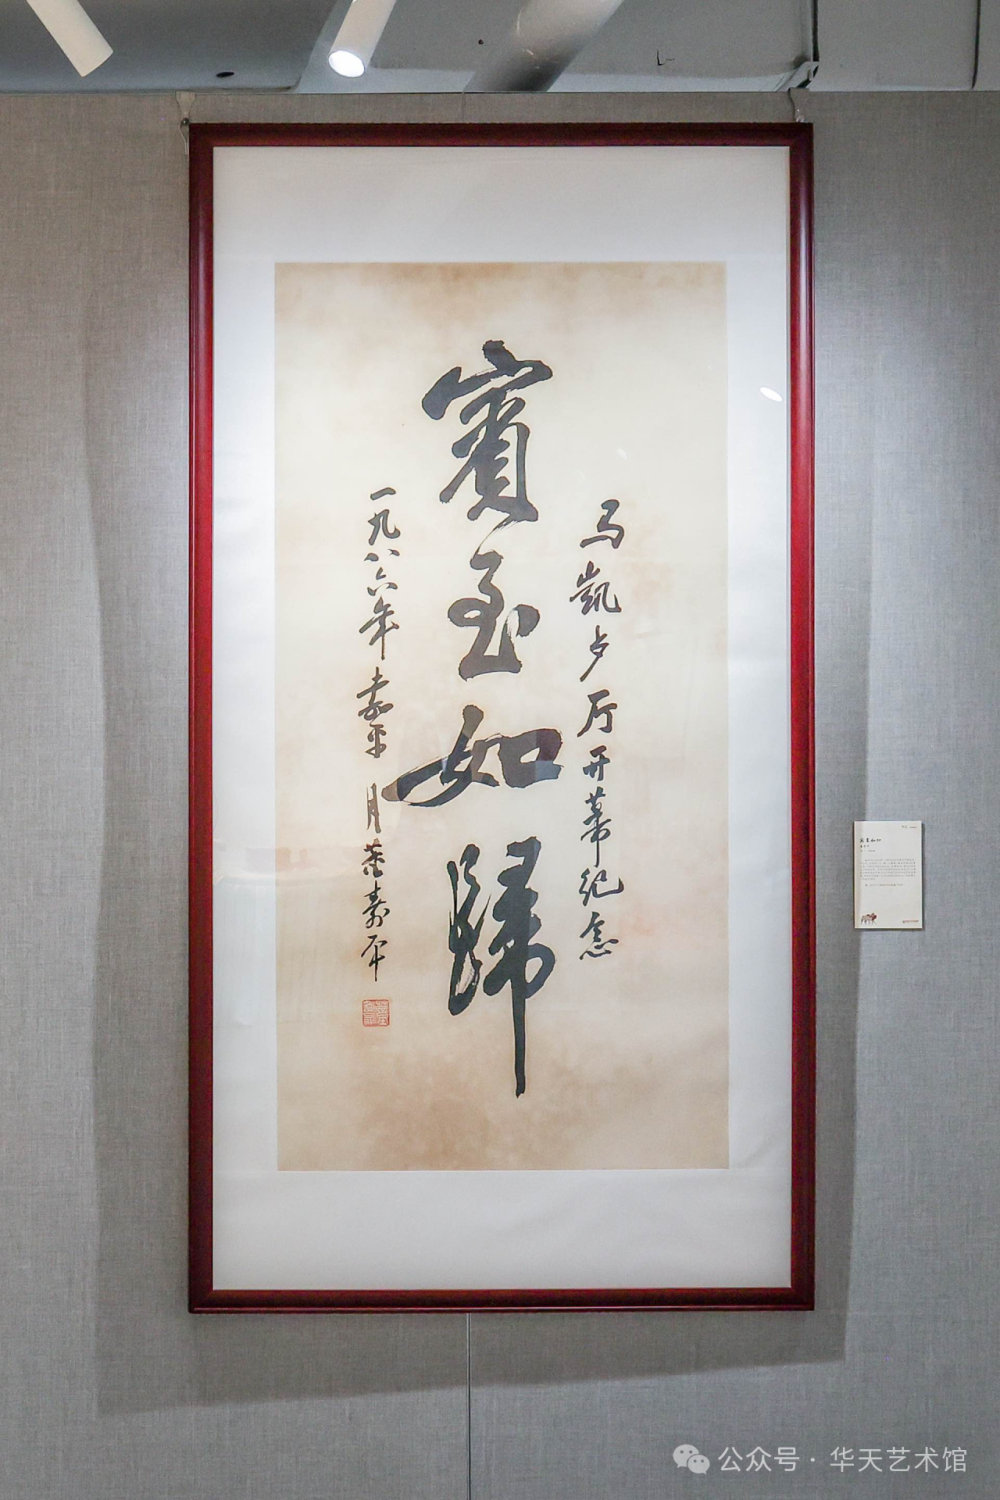 马凯卡厅开幕纪念
賓至如歸
一九八六年嘉平月董寿平
公众号·华天艺术馆